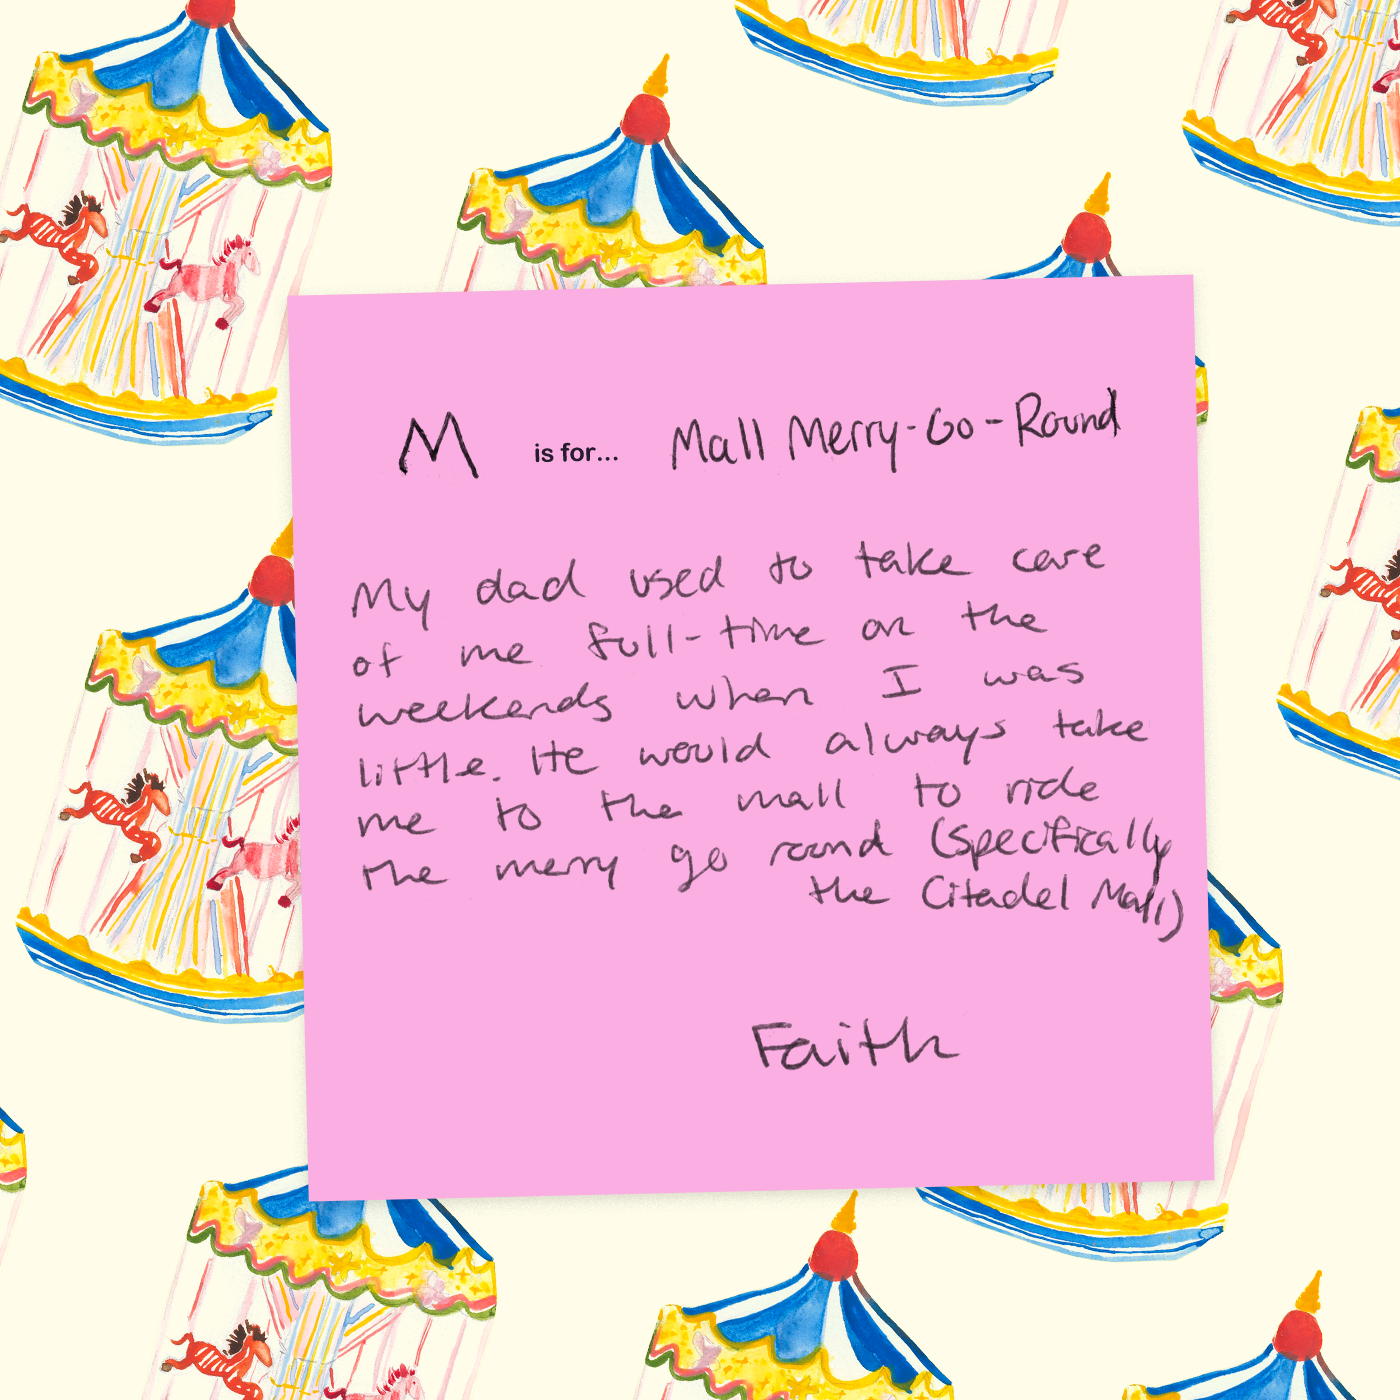 M is for... Mall Merry-Go-Round
My dad used to take care
of me full-time on the
weekends when I was
little. He would always take
me to the mall to ride
the merry go round (specifically
the Citadel Mall)
Faith